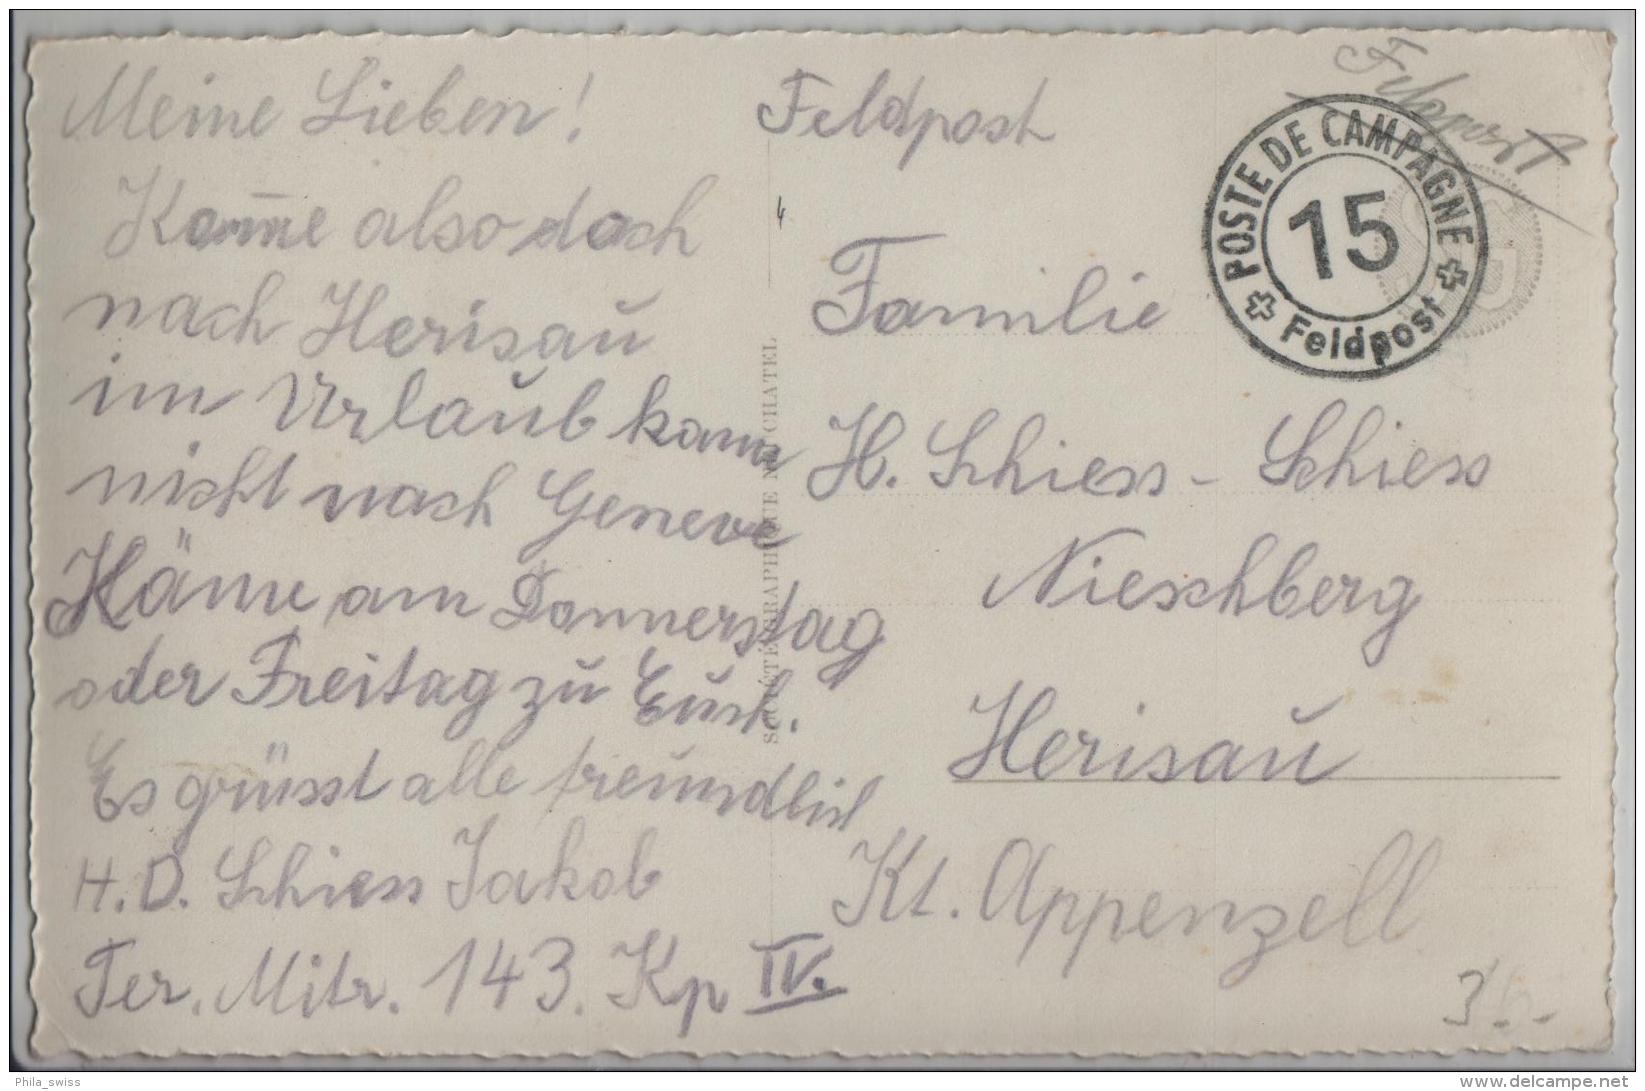 Meine Lieben!
Kom̅e also doch
nach Herisau
im Urlaub kann
nicht nach Geneve
Käme am Donnerstag
oder Freitag zu Euch.
Es grüsst alle freundlich
H.D. Schiess Jakob
Ter. Mitr. 143. Kp IV.
SOCIÉTÉ GRAPHIQUE NEUCHATEL
4
Feldpost
Feldpost
POSTE DE CAMPAGNE
15
Feldpost
Familie
H. Schiess - Schiess
Nieschberg
Herisau
Kt. Appenzell
Phila_swiss
www.delcampe.net